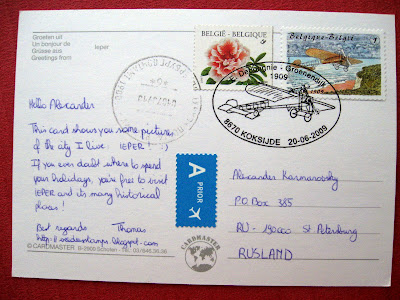 Groeten uit
Un bonjour de
Grüsse aus
Greetings from
Ieper
BELGIE - BELGIQUE
Belgique-België
1909
8670 KOKSIJDE 20-06-2009
Hello Alexander
This card shows you some pictures
of the city I live: IEPER!
If you ever doubt where to spend
your holidays, you're free to visit
IEPER and its many historical
places!
Best regards Thomas
© CARDMASTER B-2900 Schoten - Tel. 03/646.36.36
A
PRIOR
CARDMASTER
Alexander Karmanovsky
P.O. Box 385
RU - 190000 St Petersburg
RUSLAND